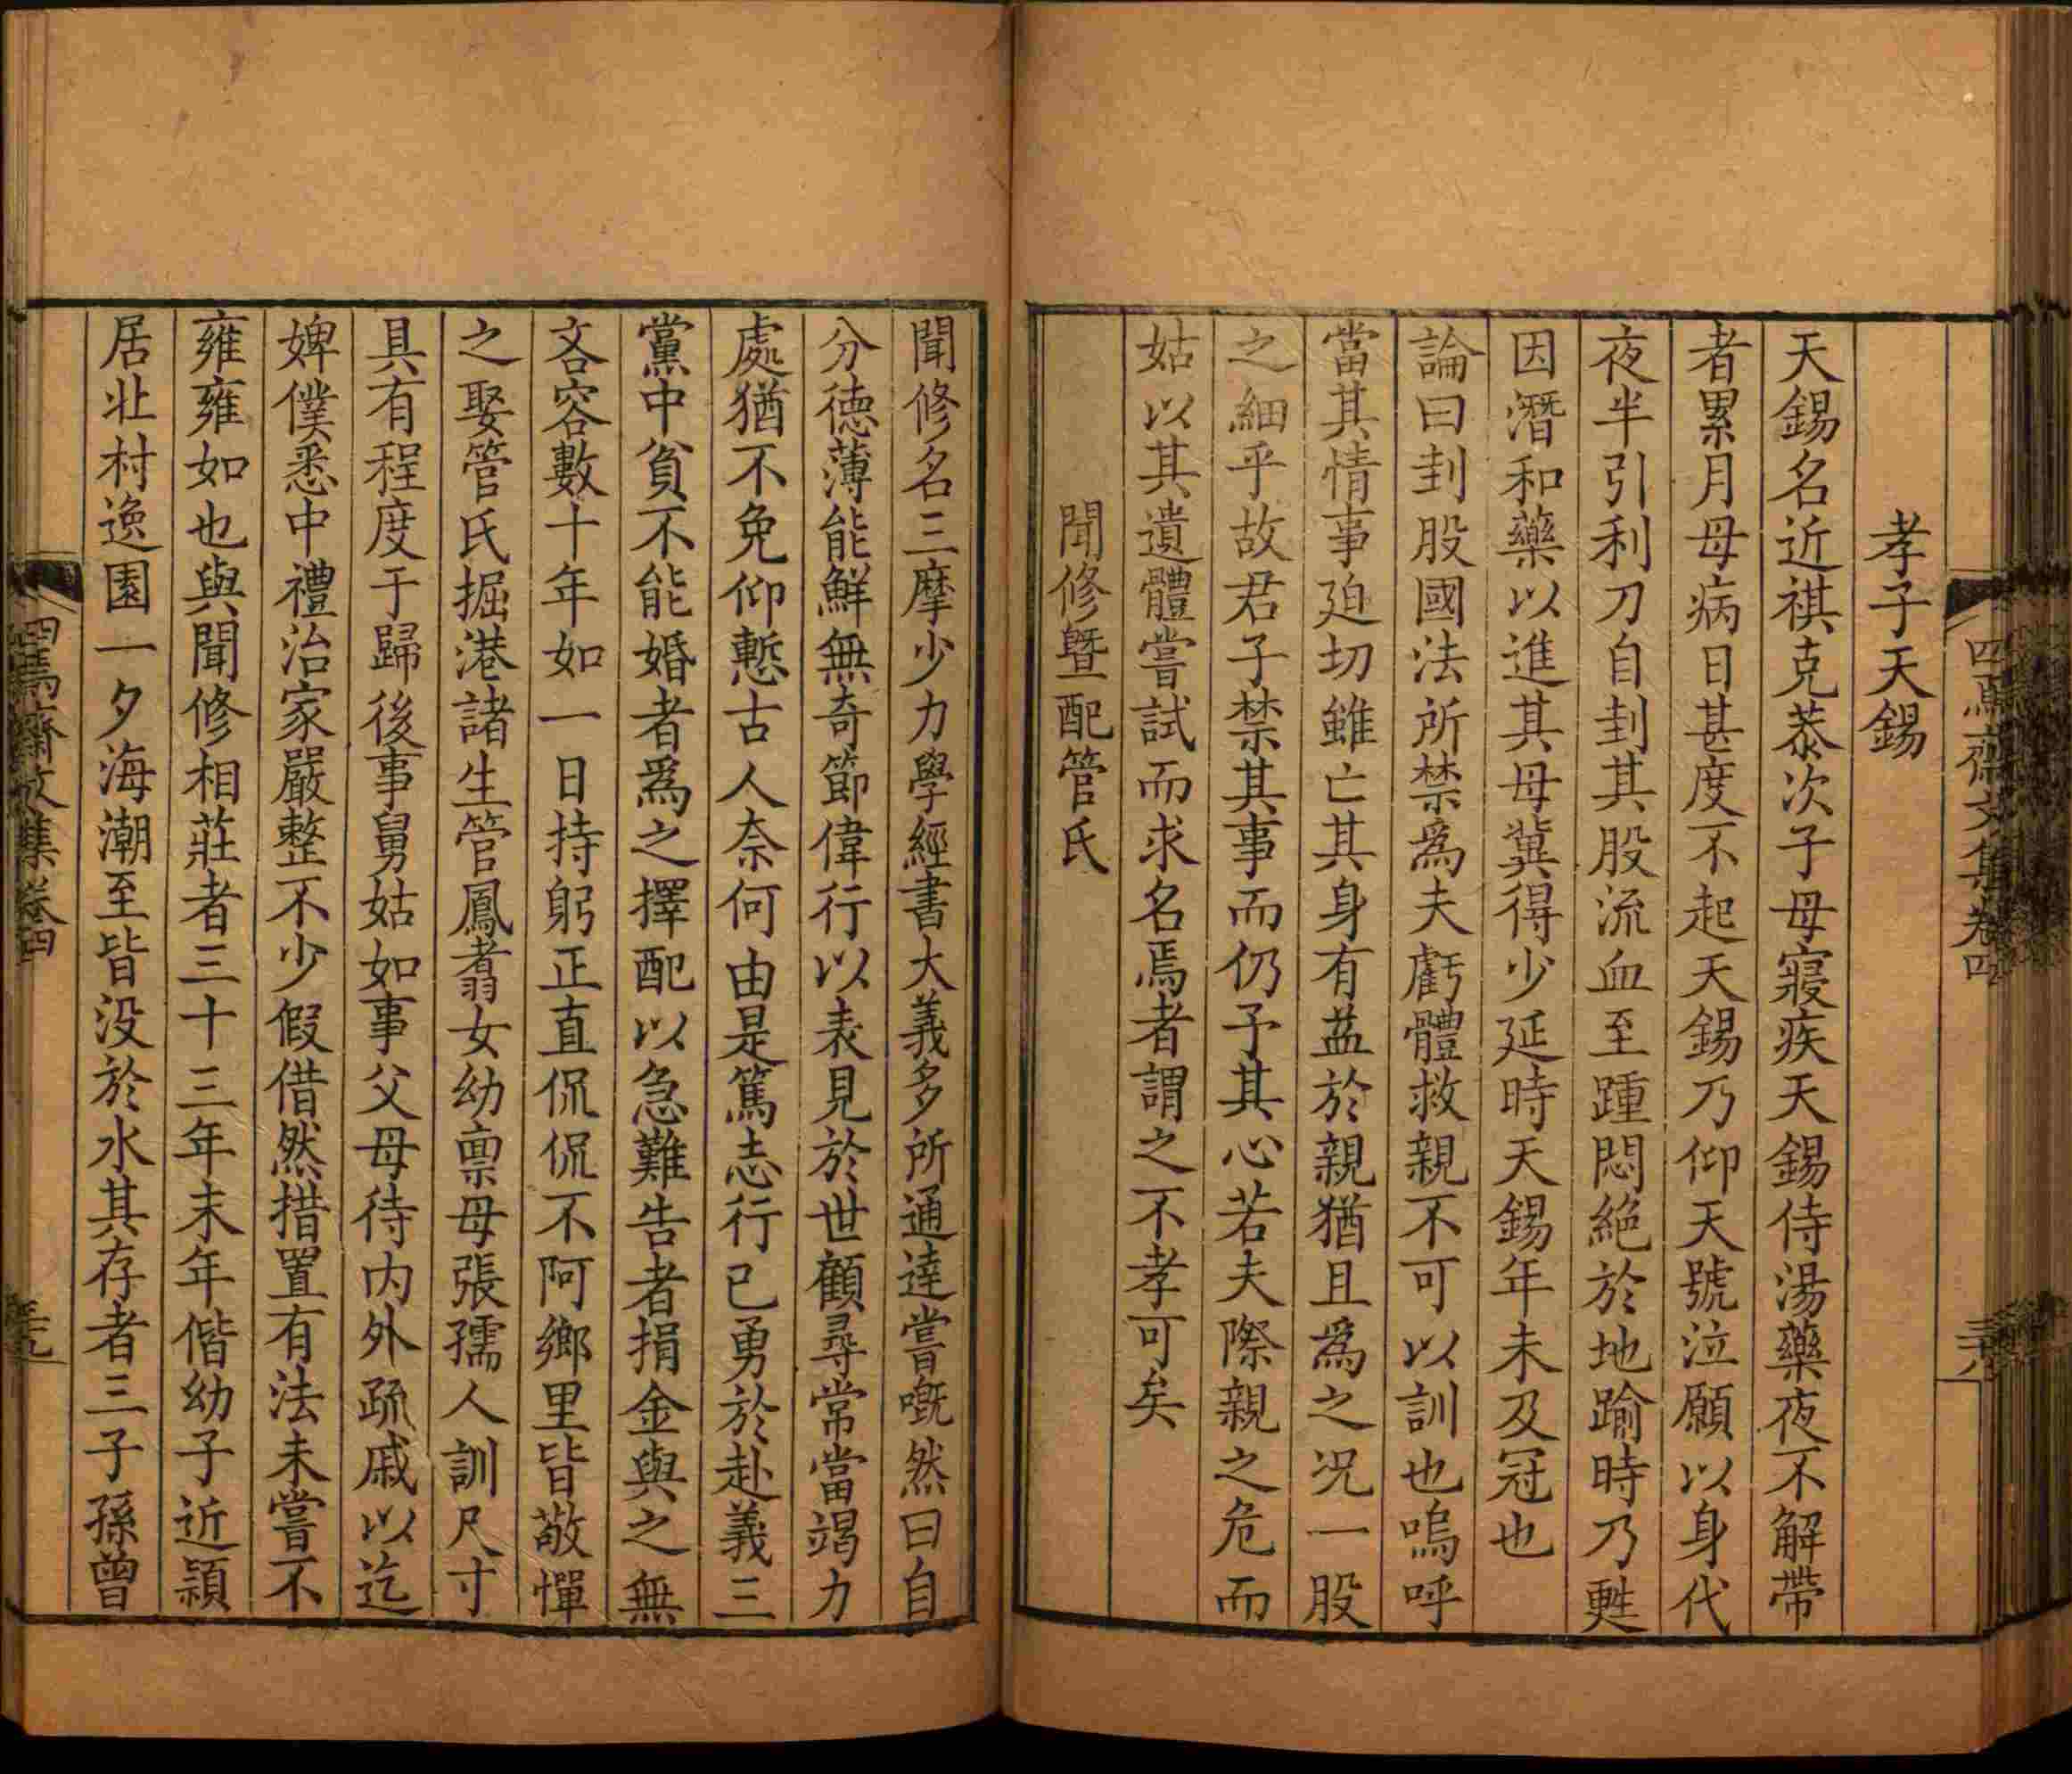 四焉齋文集卷四
三十八
孝子天錫
天錫名近祺克恭次子母寢疾天錫侍湯藥夜不解帶
者累月母病日甚度不起天錫乃仰天號泣願以身代
夜半引利刀自刲其股流血至踵悶絕於地踰時乃甦
因潛和藥以進其母冀得少延時天錫年未及冠也
論曰刲股國法所禁爲夫虧體救親不可以訓也嗚呼
當其情事廹切雖亡其身有益於親猶且爲之况一股
之細乎故君子禁其事而仍予其心若夫際親之危而
姑以其遺體嘗試而求名焉者謂之不孝可矣
聞修曁配管氏
聞修名三摩少力學經書大義多所通達嘗嘅然曰自
分德薄能鮮無奇節偉行以表見於世顧尋常當竭力
處猶不免仰慙古人奈何由是篤志行已勇於赴義三
黨中貧不能婚者爲之擇配以急難告者捐金與之無
吝容數十年如一日持躬正直侃侃不阿鄉里皆敬憚
之娶管氏掘港諸生管鳳翥女幼禀母張孺人訓尺寸
具有程度于歸後事舅姑如事父母待内外疏戚以迄
婢僕悉中禮治家嚴整不少假借然措置有法未嘗不
雍雍如也與聞修相莊者三十三年末年偕幼子近潁
居壯村逸園一夕海潮至皆没於水其存者三子孫曾
四焉齋文集卷四
三十九